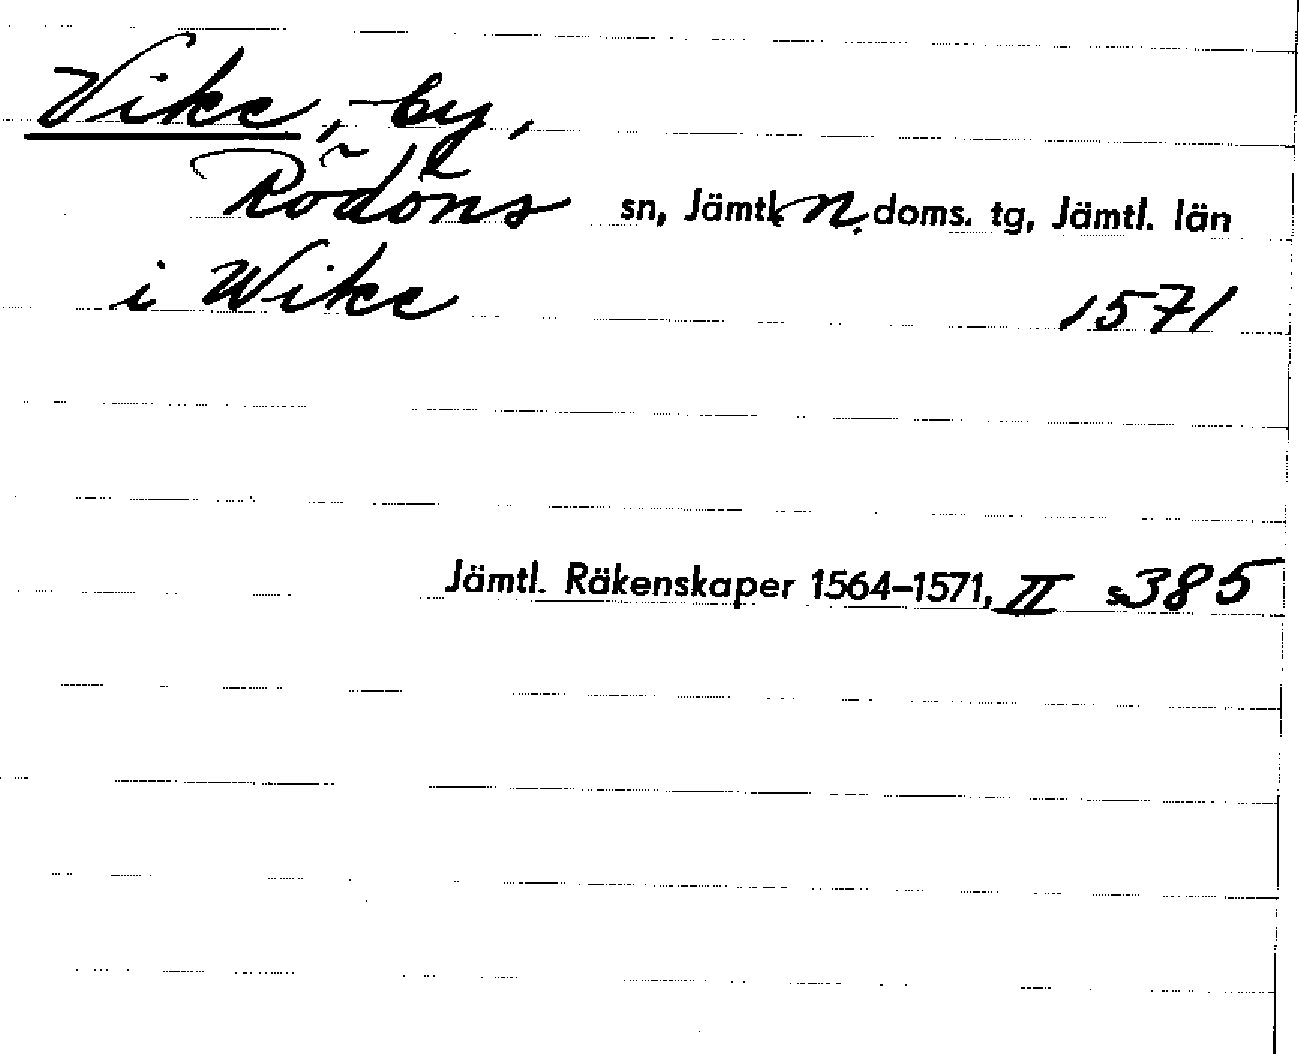 Vike, by,
Rödöns sn, Jämtl. n. doms. tg, Jämtl. län
i Wike 1571
Jämtl. Räkenskaper 1564–1571, II s. 385